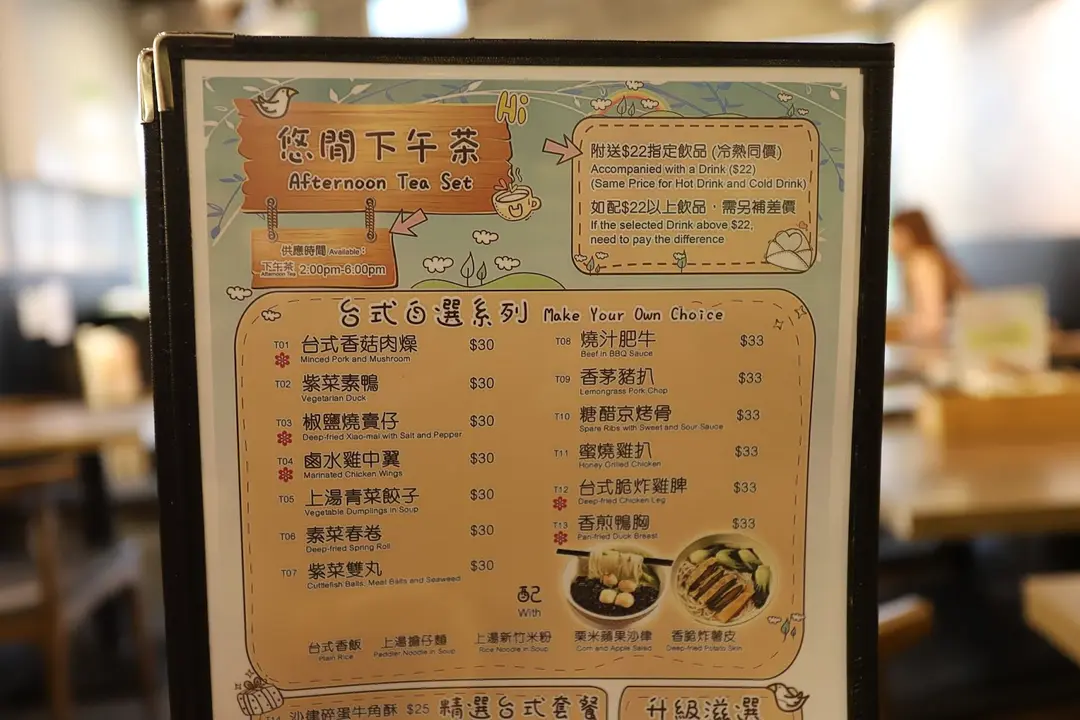 Hi
悠閒下午茶
Afternoon Tea Set
供應時間 Available :
下午茶 2:00pm-6:00pm
Afternoon Tea
附送$22指定飲品 (冷熱同價)
Accompanied with a Drink ($22)
(Same Price for Hot Drink and Cold Drink)
如配$22以上飲品，需另補差價
If the selected Drink above $22,
need to pay the difference
台式自選系列 Make Your Own Choice
T01 台式香菇肉燥 $30
Minced Pork and Mushroom
T02 紫菜素鴨 $30
Vegetarian Duck
T03 椒鹽燒賣仔 $30
Deep-fried Xiao-mai with Salt and Pepper
T04 鹵水雞中翼 $30
Marinated Chicken Wings
T05 上湯青菜餃子 $30
Vegetable Dumplings in Soup
T06 素菜春卷 $30
Deep-fried Spring Roll
T07 紫菜雙丸 $30
Cuttlefish Balls, Meat Balls and Seaweed
T08 燒汁肥牛 $33
Beef in BBQ Sauce
T09 香茅豬扒 $33
Lemongrass Pork Chop
T10 糖醋京烤骨 $33
Spare Ribs with Sweet and Sour Sauce
T11 蜜燒雞扒 $33
Honey Grilled Chicken
T12 台式脆炸雞髀 $33
Deep-fried Chicken Leg
T13 香煎鴨胸 $33
Pan-fried Duck Breast
配
With
台式香飯
Plain Rice
上湯擔仔麵
Peddler Noodle in Soup
上湯新竹米粉
Rice Noodle in Soup
粟米蘋果沙律
Corn and Apple Salad
香脆炸薯皮
Deep-fried Potato Skin
T14 沙律碎蛋牛角酥 $25
精選台式套餐
升級滋選